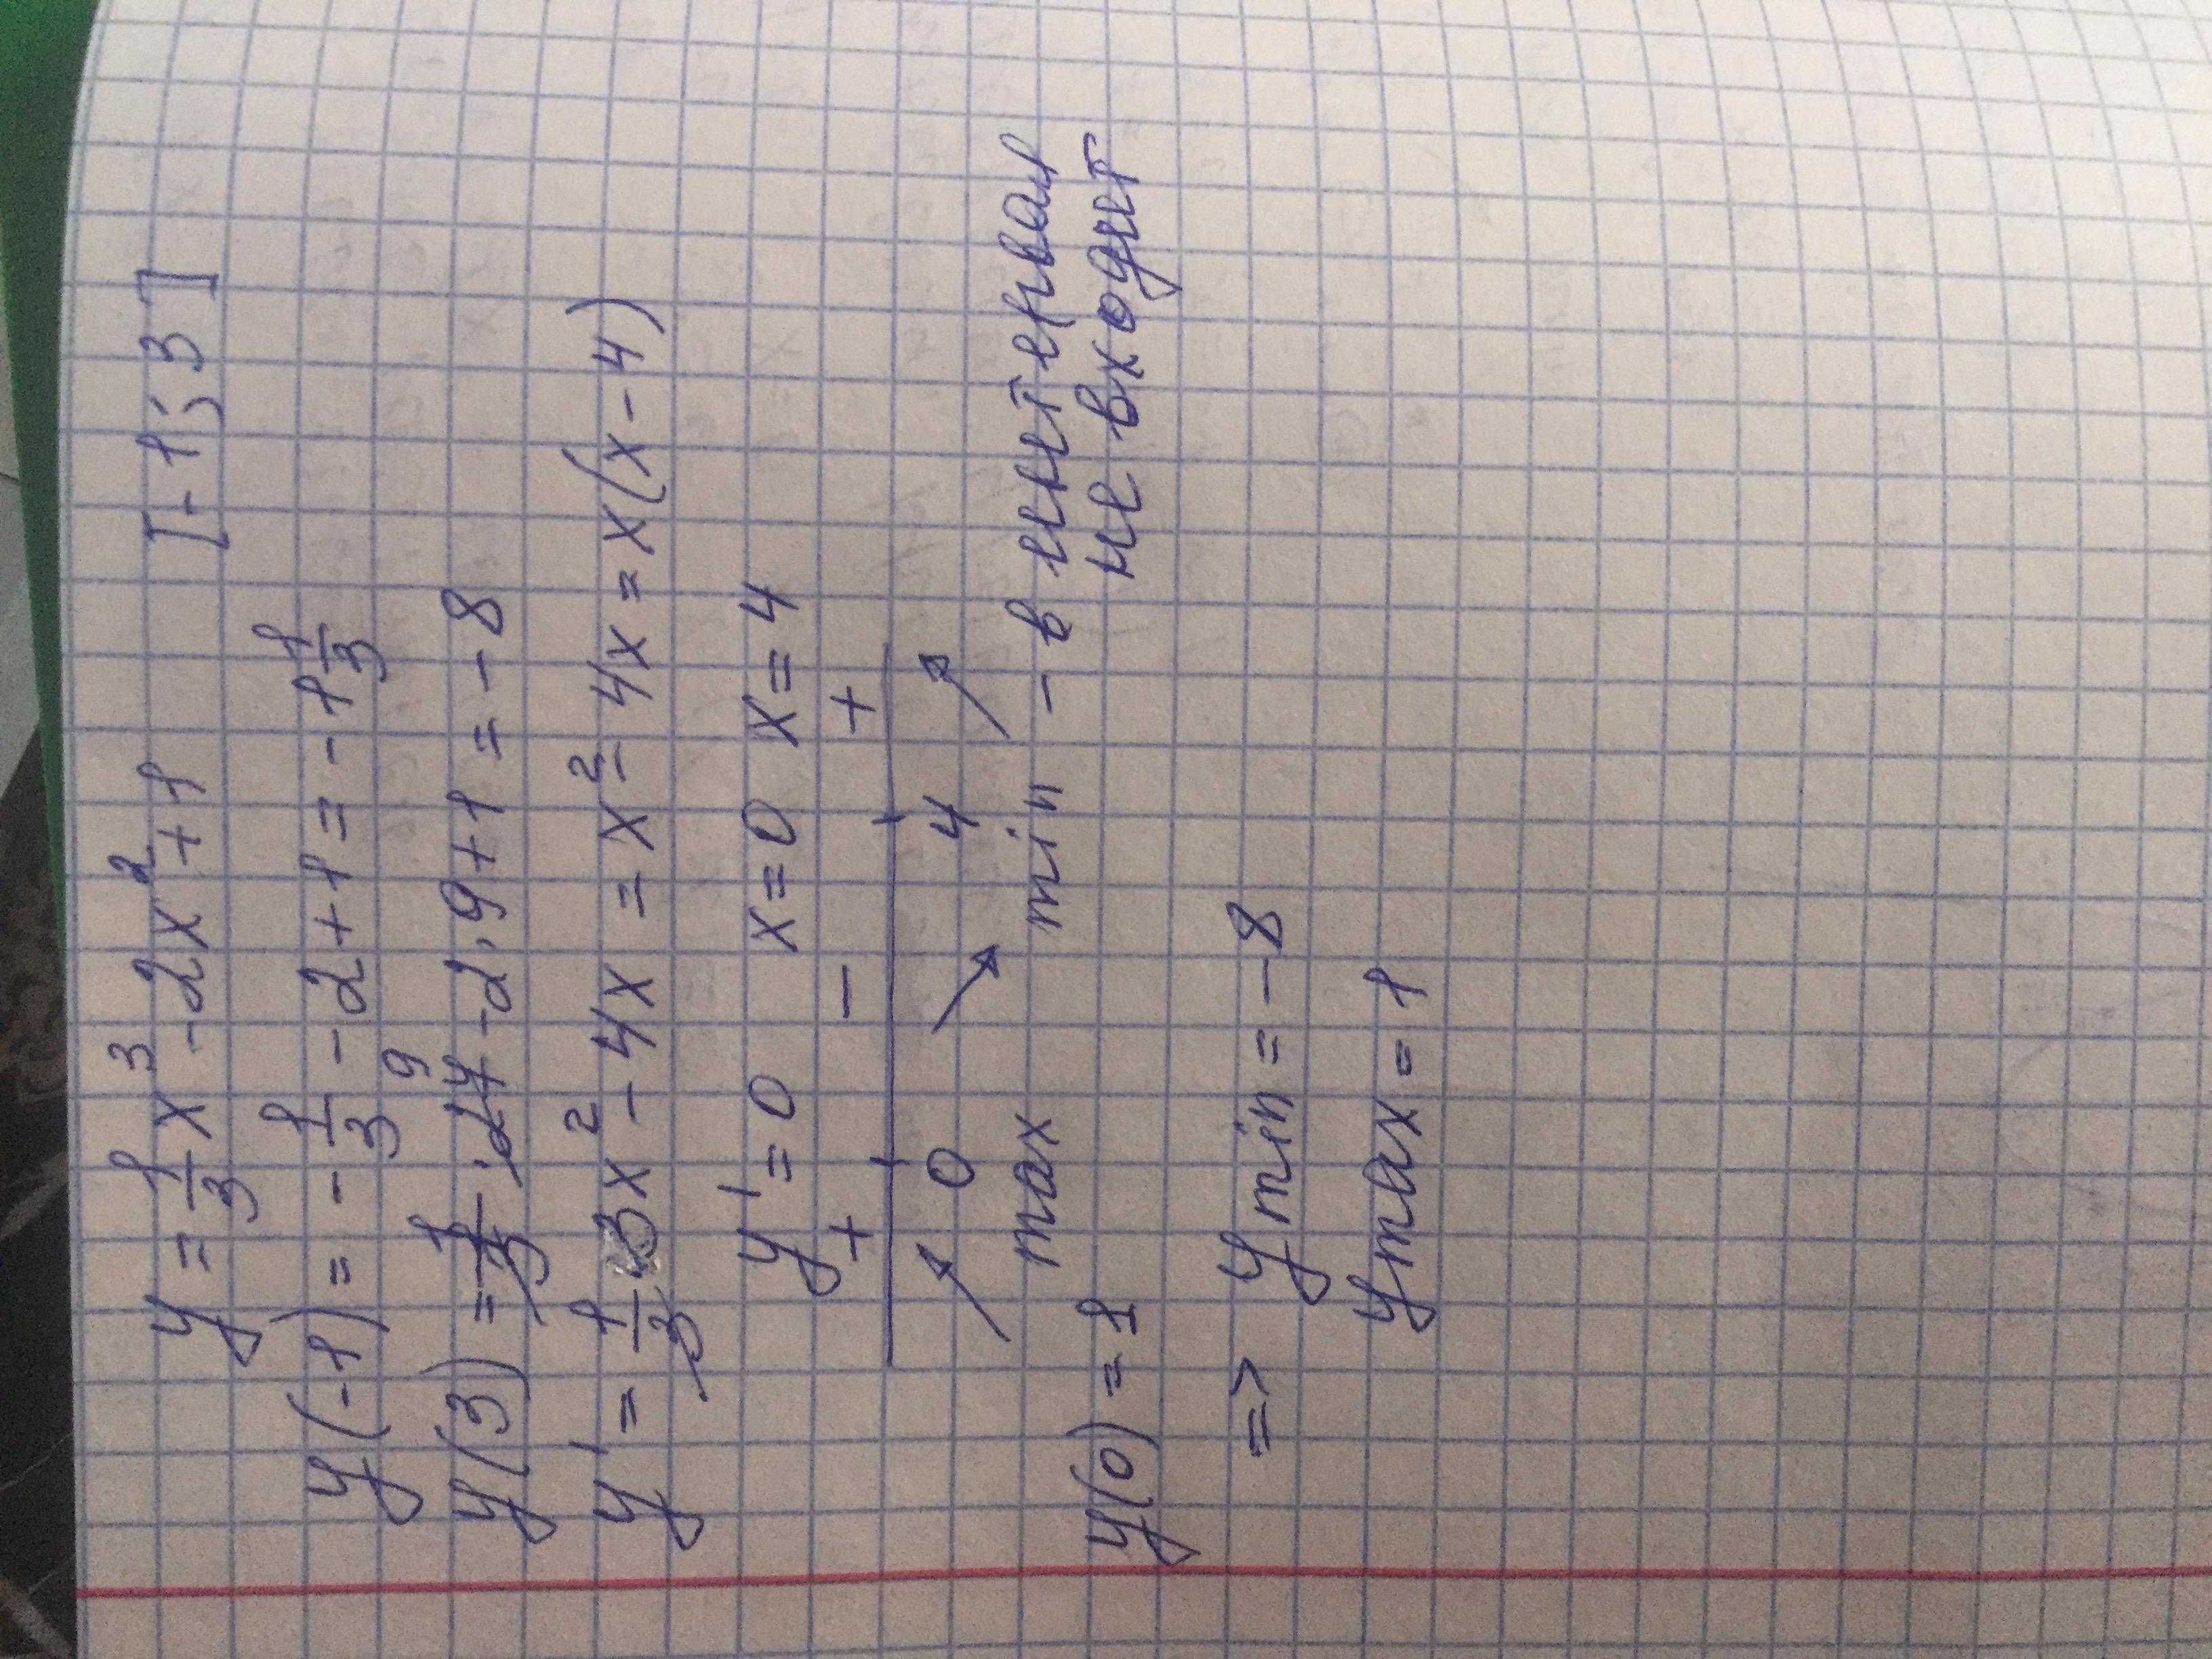 y = 1/3 x³ - 2x² + 1   [-1; 3]
y(-1) = - 1/3 - 2 + 1 = - 1 1/3
y(3) = 1/3 · 27 9 - 2 · 9 + 1 = - 8
y' = 1/3 · 3x² - 4x = x² - 4x = x(x - 4)
y' = 0   x = 0   x = 4
+   -   +
0   4
max   min - в интервал
не входит
y(0) = 1
=> ymin = -8
ymax = 1